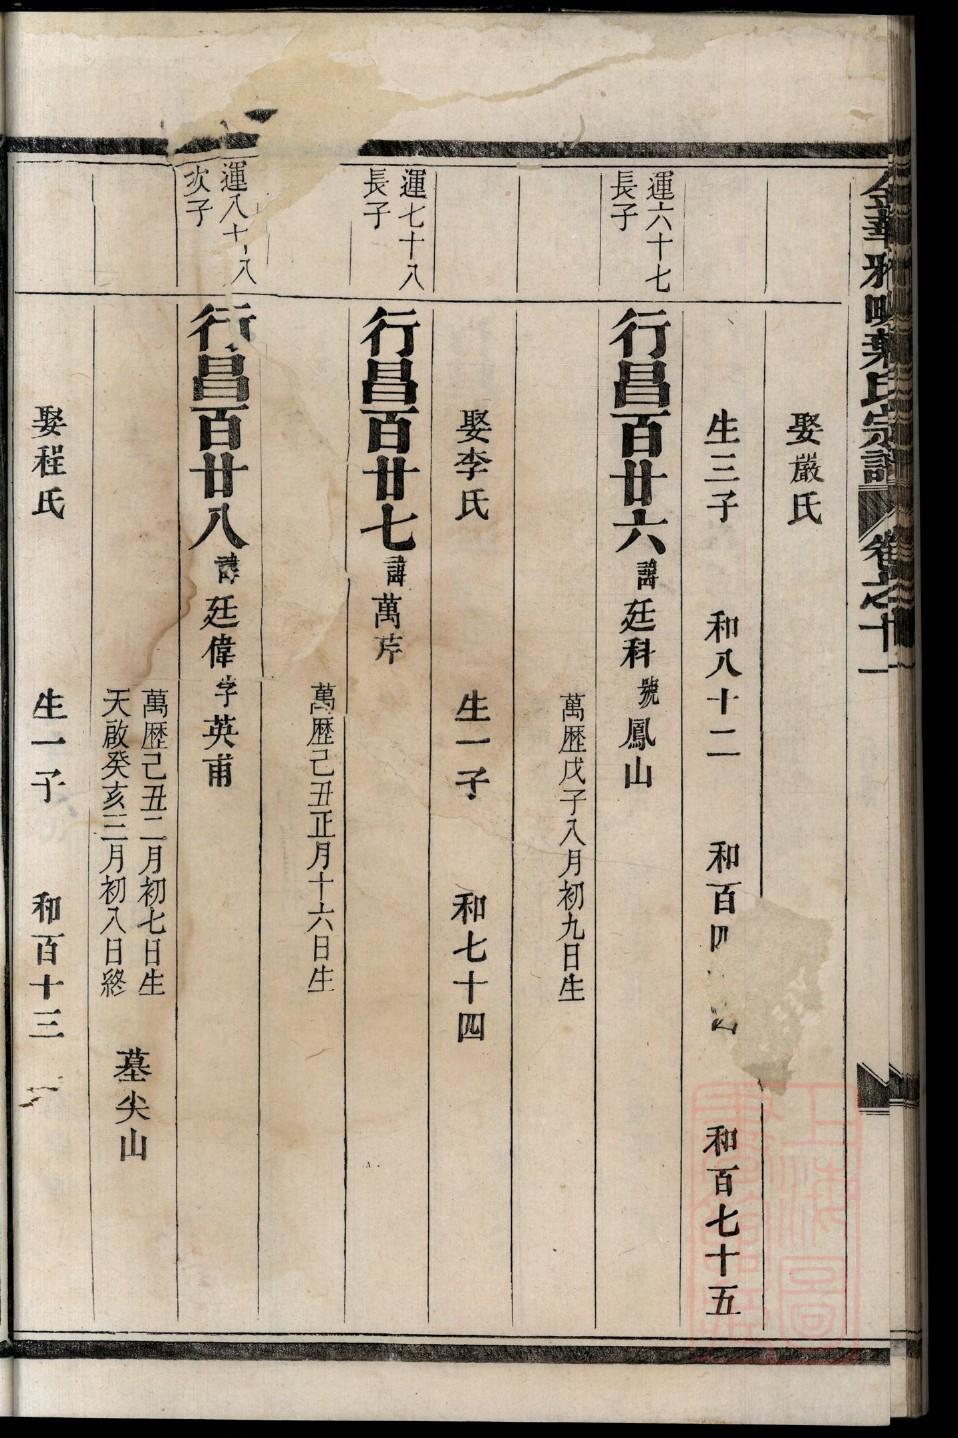 金華雅畈葉氏宗譜 卷之十一
娶嚴氏
生三子 和八十二 和百四 和百七十五
運六十七
長子
行昌百廿六 諱廷科 號鳳山
萬歷戊子八月初九日生
娶李氏 生一子 和七十四
運七十八
長子
行昌百廿七 諱萬芹
萬歷己丑正月十六日生
運八十八
次子
行昌百廿八 諱廷偉 字英甫
萬歷己丑二月初七日生
天啟癸亥三月初八日終
墓尖山
娶程氏 生一子 和百十三
上海圖書館藏